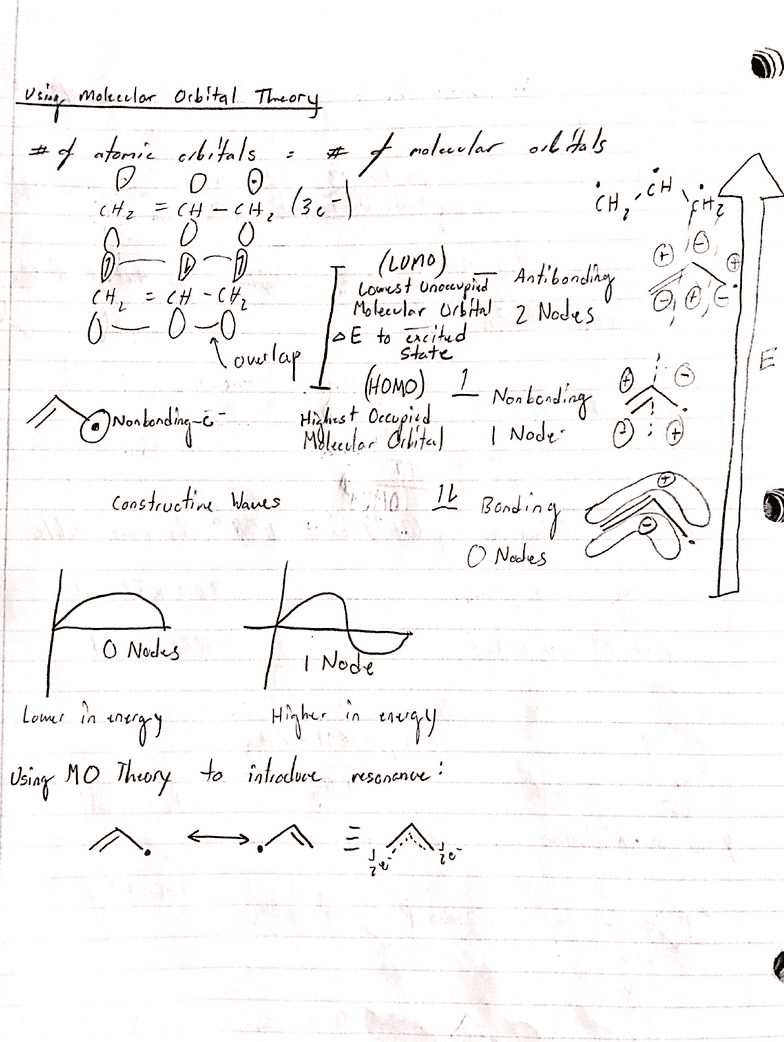 Using Molecular Orbital Theory
# of atomic orbitals = # of molecular orbitals
CH2 = CH - CH2 (3e-)
ĊH2 ĊH ĊH2
CH2 = CH - CH2
overlap
(LUMO)
Lowest Unoccupied
Molecular Orbital
ΔE to excited
state
Antibonding
2 Nodes
E
Nonbonding-e-
(HOMO) 1
Highest Occupied
Molecular Orbital
Nonbonding
1 Node
Constructive Waves
1L Bonding
0 Nodes
0 Nodes
1 Node
Lower in energy
Higher in energy
Using MO Theory to introduce resonance:
1/2 e- 1/2 e-